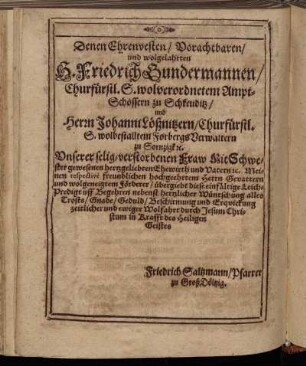 Denen Ehrenvesten / Vorachtbaren /
und wolgelahrten
H. Friedrich Gundermannen /
Churfürstl. S. wolverordnetem Ampt-
Schössern zu Schkeuditz /
und
Herrn Johanni Lößnitzern / Churfürstl.
S. wolbestalltem Forbergs Verwaltern
zu Sornzigk ꝛc.
Unserer selig / verstorbenen Fraw Mit Schwe-
ster gewesenen hertzgeliebten Ehewirth und Vatern ꝛc. Mei-
nen respectivè freundlichen hochgeehrten Herrn Gevattern
und wolgeneigten Förderer / übergiebt diese einfältige Leich-
Predigt uff Begehren nebenst hertzlicher Wüntschung alles
Trosts / Gnade / Geduld / Beschirmung und Erquickung
zeitlicher und ewiger Wolfahrt durch Jesum Chri-
stum in Krafft des Heiligen
Geistes
Friedrich Saltzmann / Pfarrer
zu Groß Döltzig.